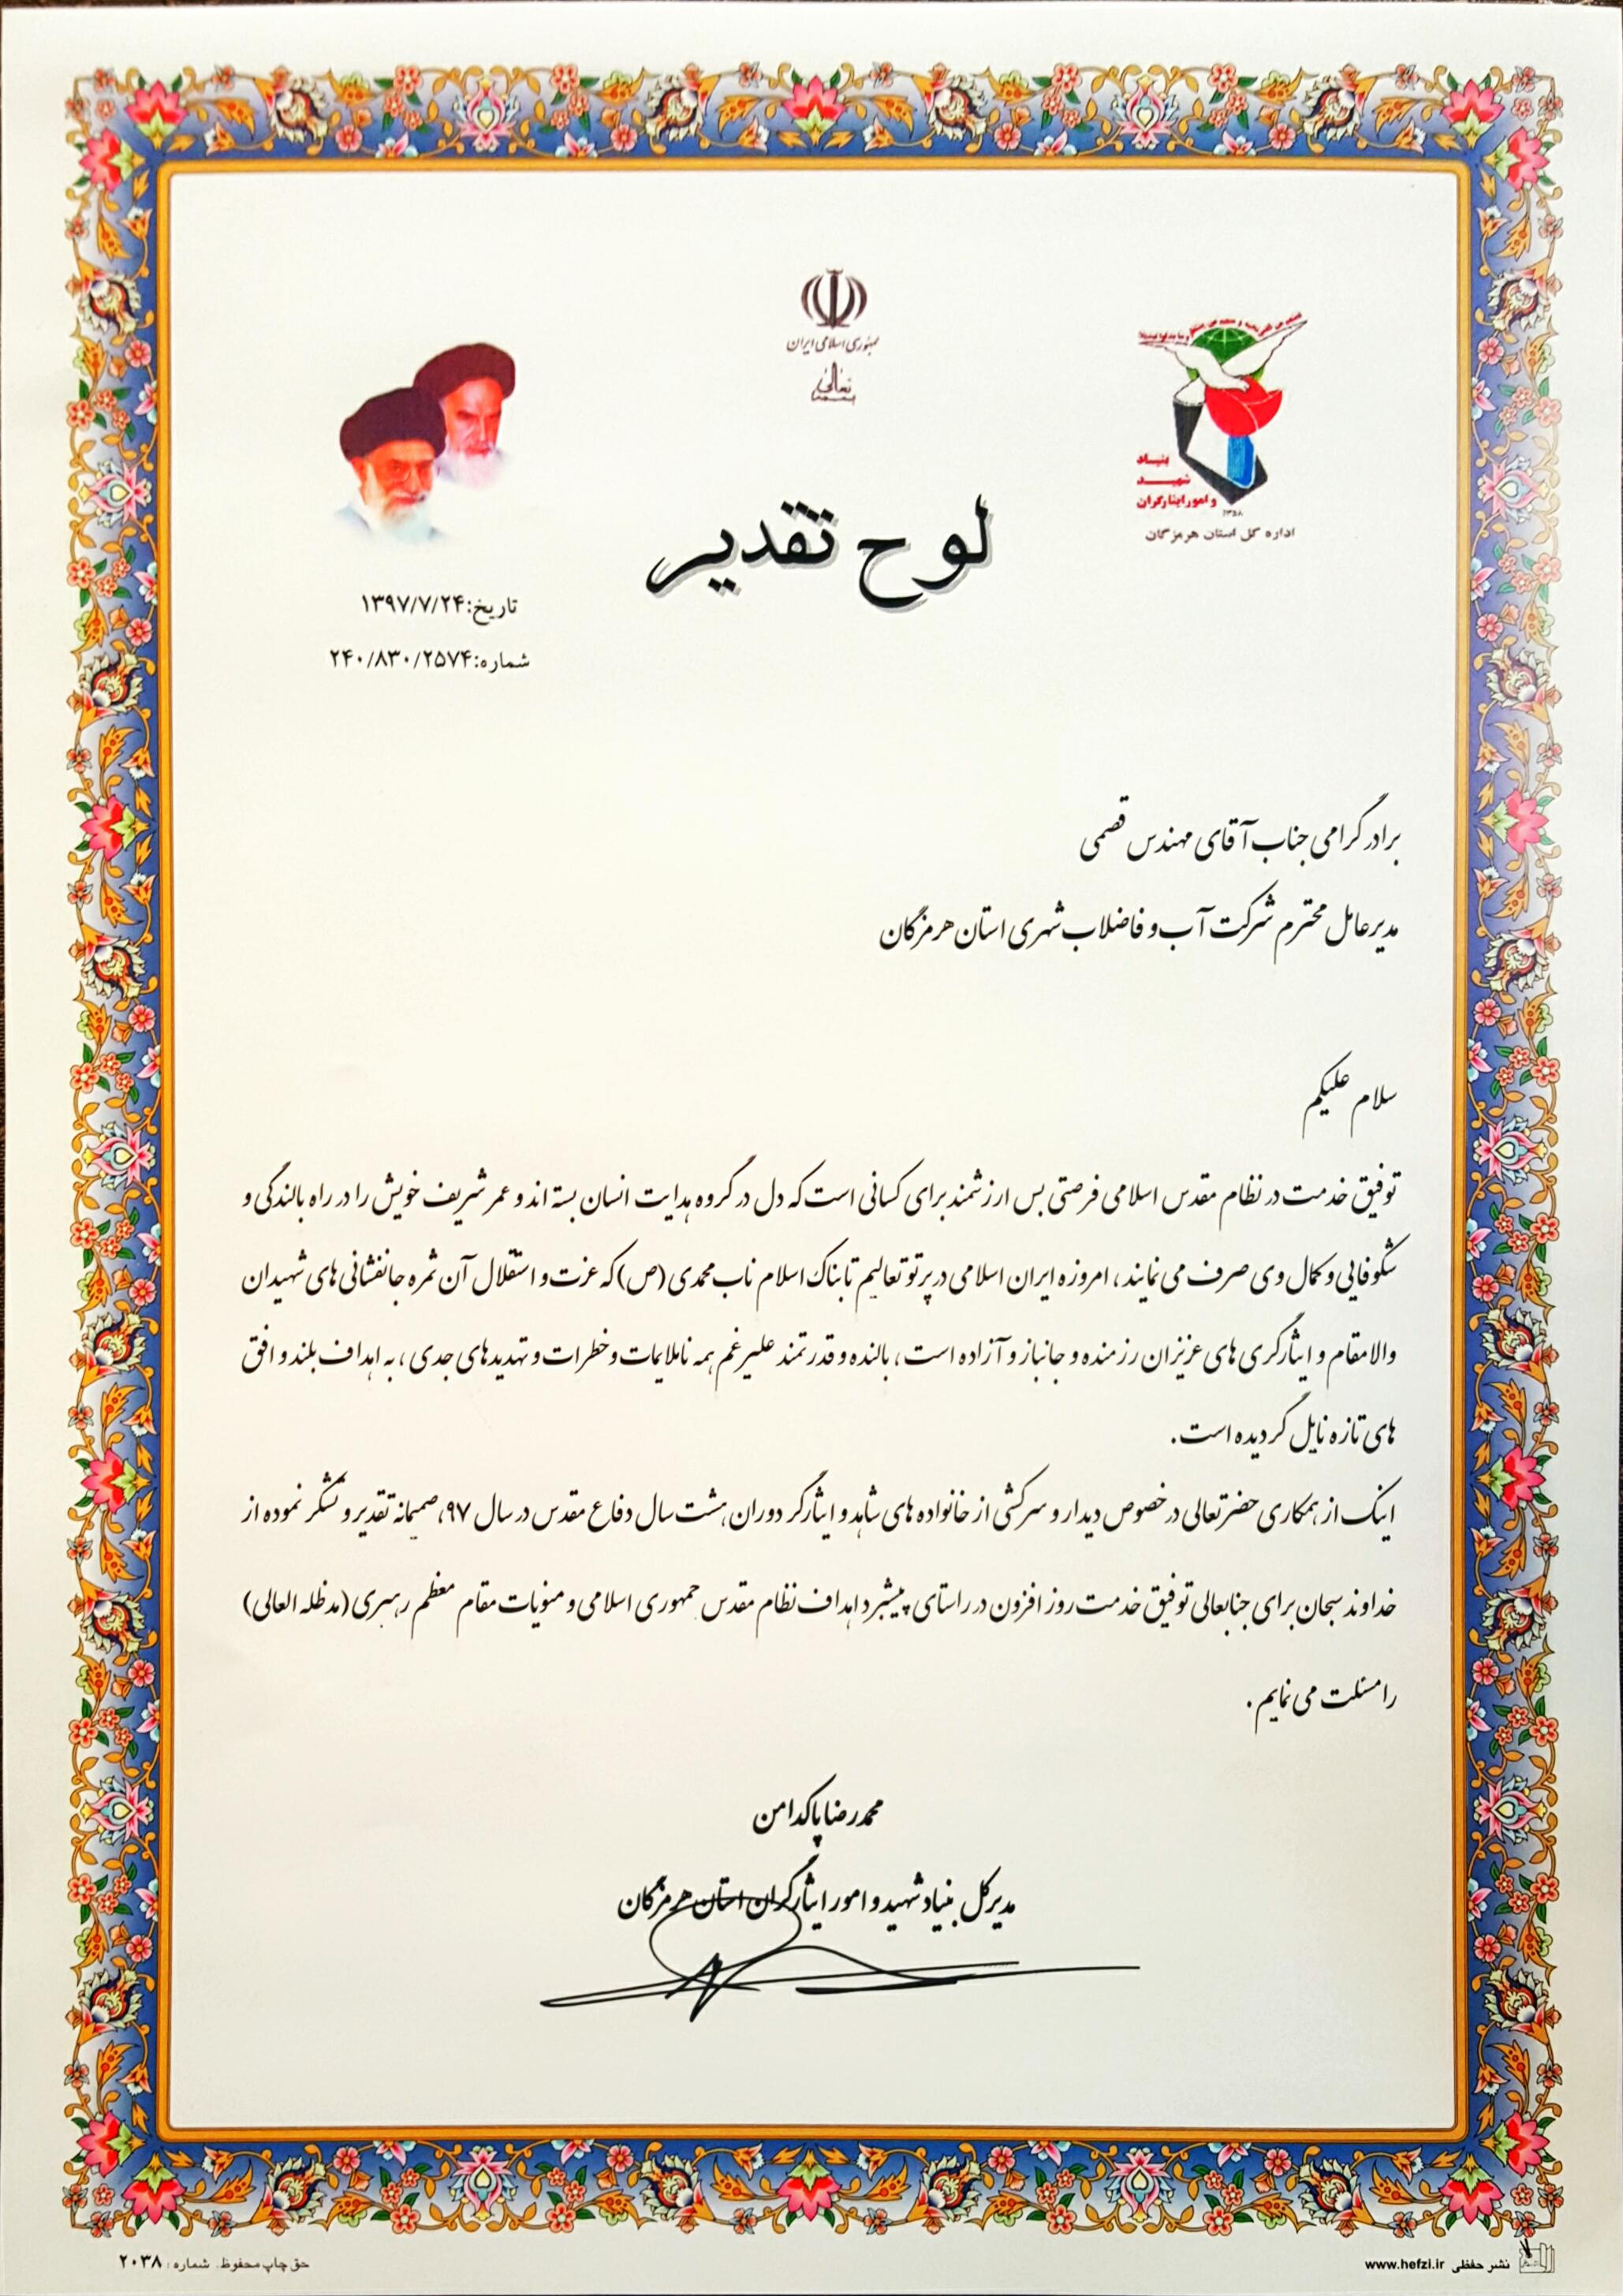 جمهوری اسلامی ایران
بسمه تعالی
بنیاد
شهید
و امور ایثارگران
۱۳۵۸
اداره کل استان هرمزگان
لوح تقدیر
تاریخ:۱۳۹۷/۷/۲۴
شماره:۲۴۰/۸۳۰/۲۵۷۴
برادر گرامی جناب آقای مهندس قصمی
مدیرعامل محترم شرکت آب و فاضلاب شهری استان هرمزگان
سلام علیکم
توفیق خدمت در نظام مقدس اسلامی فرصتی بس ارزشمند برای کسانی است که دل در گروه هدایت انسان بسته اند و عمر شریف خویش را در راه بالندگی و
شکوفایی و کمال وی صرف می نمایند ، امروزه ایران اسلامی در پرتو تعالیم تابناک اسلام ناب محمدی (ص) که عزت و استقلال آن ثمره جانفشانی های شهیدان
والامقام و ایثارگری های عزیزان رزمنده و جانباز و آزاده است ، بالنده و قدرتمند علیرغم همه ناملایمات و خطرات و تهدیدهای جدی ، به اهداف بلند و افق
های تازه نایل گردیده است .
اینک از همکاری حضرتعالی در خصوص دیدار و سرکشی از خانواده های شاهد و ایثارگر دوران هشت سال دفاع مقدس در سال ۹۷، صمیمانه تقدیر و تشکر نموده از
خداوند سبحان برای جنابعالی توفیق خدمت روز افزون در راستای پیشبرد اهداف نظام مقدس جمهوری اسلامی و منویات مقام معظم رهبری (مدظله العالی)
را مسئلت می نمایم .
محمدرضا پاکدامن
مدیرکل بنیاد شهید و امور ایثارگران استان هرمزگان
حق چاپ محفوظ. شماره : ۲۰۳۸
نشر حفظی www.hefzi.ir